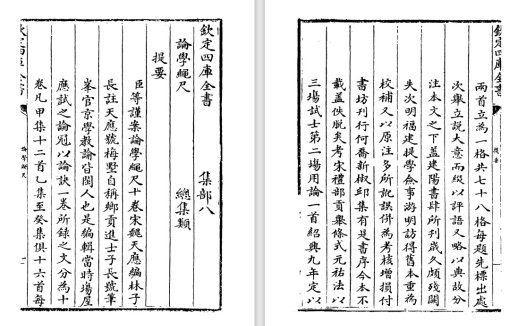 欽定四庫全書 集部八
論學繩尺 總集類
提要
臣等謹案論學繩尺十卷宋魏天應編林子
長註天應號梅墅自稱鄉貢進士子長號筆
峯官京學教諭皆閩人也是編輯當時場屋
應試之論冠以論訣一卷所錄之文分為十
卷凡甲集十二首乙集至癸集俱十六首每
欽定四庫全書
論學繩尺
一
欽定四庫全書
提要
兩首立為一格共七十八格每題先標出處
次舉立說大意而綴以評語又略以典故分
注本文之下蓋建陽書肆所刋歲久頗殘闕
失次明福建提學僉事游明訪得舊本重為
校補又以原注多所訛誤併為考核增損付
書坊刋行何喬新椒邱集有是書序今本不
載蓋佚脫矣考宋禮部貢舉條式元祐法以
三場試士第二場用論一首紹興九年定以